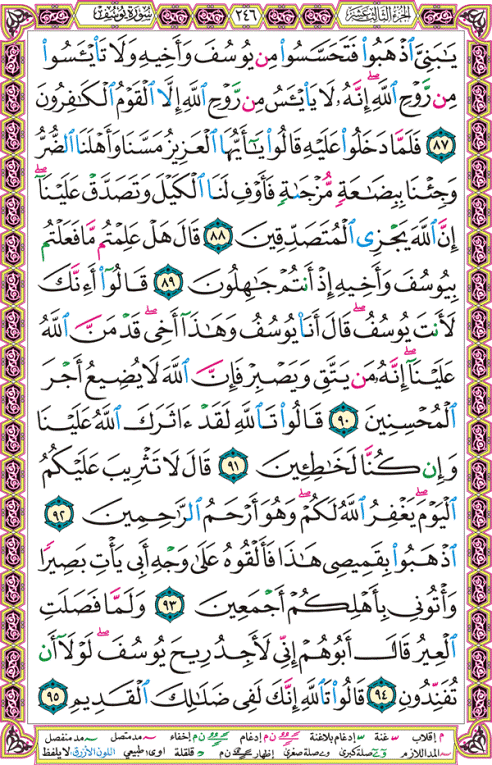 الجزء الثالث عشر ٢٤٦ سورة يوسف
يَٰبَنِىَّ ٱذْهَبُوا۟ فَتَحَسَّسُوا۟ مِن يُوسُفَ وَأَخِيهِ وَلَا تَا۟يْـَٔسُوا۟
مِن رَّوْحِ ٱللَّهِ ۖ إِنَّهُۥ لَا يَا۟يْـَٔسُ مِن رَّوْحِ ٱللَّهِ إِلَّا ٱلْقَوْمُ ٱلْكَٰفِرُونَ
٨٧ فَلَمَّا دَخَلُوا۟ عَلَيْهِ قَالُوا۟ يَٰٓأَيُّهَا ٱلْعَزِيزُ مَسَّنَا وَأَهْلَنَا ٱلضُّرُّ
وَجِئْنَا بِبِضَٰعَةٍ مُّزْجَىٰةٍ فَأَوْفِ لَنَا ٱلْكَيْلَ وَتَصَدَّقْ عَلَيْنَآ ۖ
إِنَّ ٱللَّهَ يَجْزِى ٱلْمُتَصَدِّقِينَ ٨٨ قَالَ هَلْ عَلِمْتُم مَّا فَعَلْتُم
بِيُوسُفَ وَأَخِيهِ إِذْ أَنتُمْ جَٰهِلُونَ ٨٩ قَالُوٓا۟ أَءِنَّكَ
لَأَنتَ يُوسُفُ ۖ قَالَ أَنَا۠ يُوسُفُ وَهَٰذَآ أَخِى ۖ قَدْ مَنَّ ٱللَّهُ
عَلَيْنَآ ۖ إِنَّهُۥ مَن يَتَّقِ وَيَصْبِرْ فَإِنَّ ٱللَّهَ لَا يُضِيعُ أَجْرَ
ٱلْمُحْسِنِينَ ٩٠ قَالُوا۟ تَٱللَّهِ لَقَدْ ءَاثَرَكَ ٱللَّهُ عَلَيْنَا
وَإِن كُنَّا لَخَٰطِـِٔينَ ٩١ قَالَ لَا تَثْرِيبَ عَلَيْكُمُ
ٱلْيَوْمَ ۖ يَغْفِرُ ٱللَّهُ لَكُمْ ۖ وَهُوَ أَرْحَمُ ٱلرَّٰحِمِينَ ٩٢
ٱذْهَبُوا۟ بِقَمِيصِى هَٰذَا فَأَلْقُوهُ عَلَىٰ وَجْهِ أَبِى يَأْتِ بَصِيرًا
وَأْتُونِى بِأَهْلِكُمْ أَجْمَعِينَ ٩٣ وَلَمَّا فَصَلَتِ
ٱلْعِيرُ قَالَ أَبُوهُمْ إِنِّى لَأَجِدُ رِيحَ يُوسُفَ ۖ لَوْلَآ أَن
تُفَنِّدُونِ ٩٤ قَالُوا۟ تَٱللَّهِ إِنَّكَ لَفِى ضَلَٰلِكَ ٱلْقَدِيمِ ٩٥
م إقلاب غنة إدغام بلاغنة ن م إدغام ن م إخفاء مد متصل مد منفصل
المد اللازم صلة كبرى صلة صغرى إظهار ن م قلقلة اوى: طبيعي اللون الأزرق: لا يلفظ